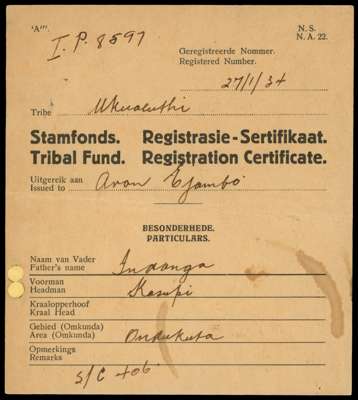 'A'".
N.S.
N.A. 22.
I.P. 8597
Geregistreerde Nommer.
Registered Number.
27/1/34
Tribe Ukualuthi
Stamfonds. Registrasie-Sertifikaat.
Tribal Fund. Registration Certificate.
Uitgereik aan
Issued to Aron Ejambo
BESONDERHEDE.
PARTICULARS.
Naam van Vader
Father's name Indonga
Voorman
Headman Kasupi
Kraalopperhoof
Kraal Head
Gebied (Omkunda)
Area (Omkunda) Ondukuta
Opmerkings
Remarks
S/C 406